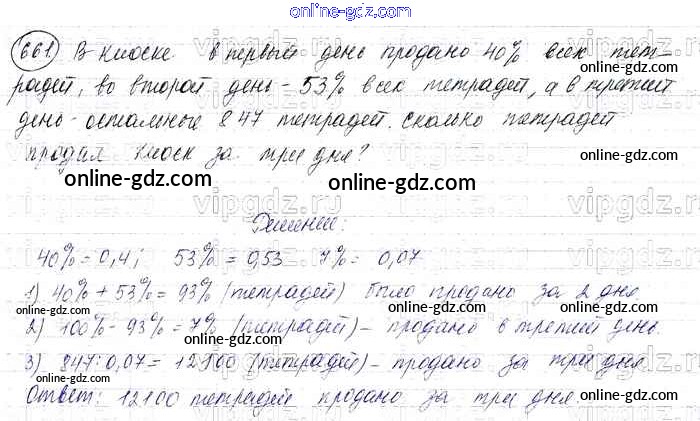 online-gdz.com
661) В киоске в первый день продано 40% всех тет-
радей, во второй день - 53% всех тетрадей, а в третий
день - остальные 847 тетрадей. Сколько тетрадей
продал киоск за три дня?
online-gdz.com
vipgdz.ru
Решение:
40% = 0,4; 53% = 0,53 7% = 0,07
1) 40% + 53% = 93% (тетрадей) было продано за 2 дня
2) 100% - 93% = 7% (тетрадей) - продано в третий день.
3) 847 : 0,07 = 12100 (тетрадей) - продано за три дня.
Ответ: 12100 тетрадей продано за три дня.
online-gdz.com